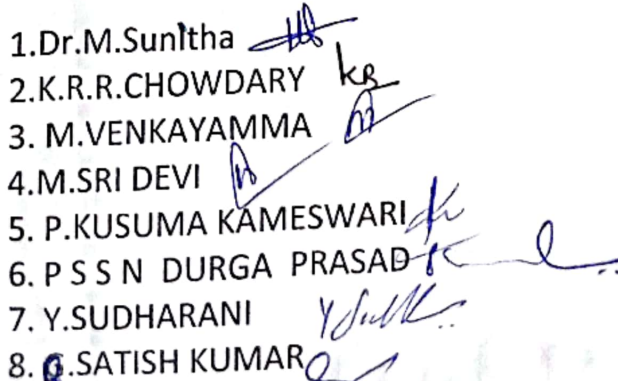 1.Dr.M.Sunitha
2.K.R.R.CHOWDARY KR
3. M.VENKAYAMMA
4.M.SRI DEVI
5. P.KUSUMA KAMESWARI
6. P S S N DURGA PRASAD
7. Y.SUDHARANI
8. G.SATISH KUMAR